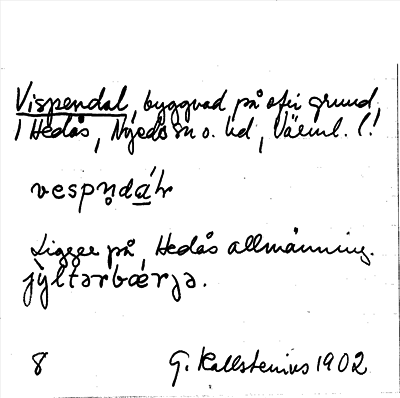 Vispendal, byggnad på ofri grund,
i Hedås, Nyeds sn o. hd, Värml. l.
vespn̥da̲´lr
Ligger på Hedås allmänning.
jỳltərbærjə.
8 G. Kallstenius 1902